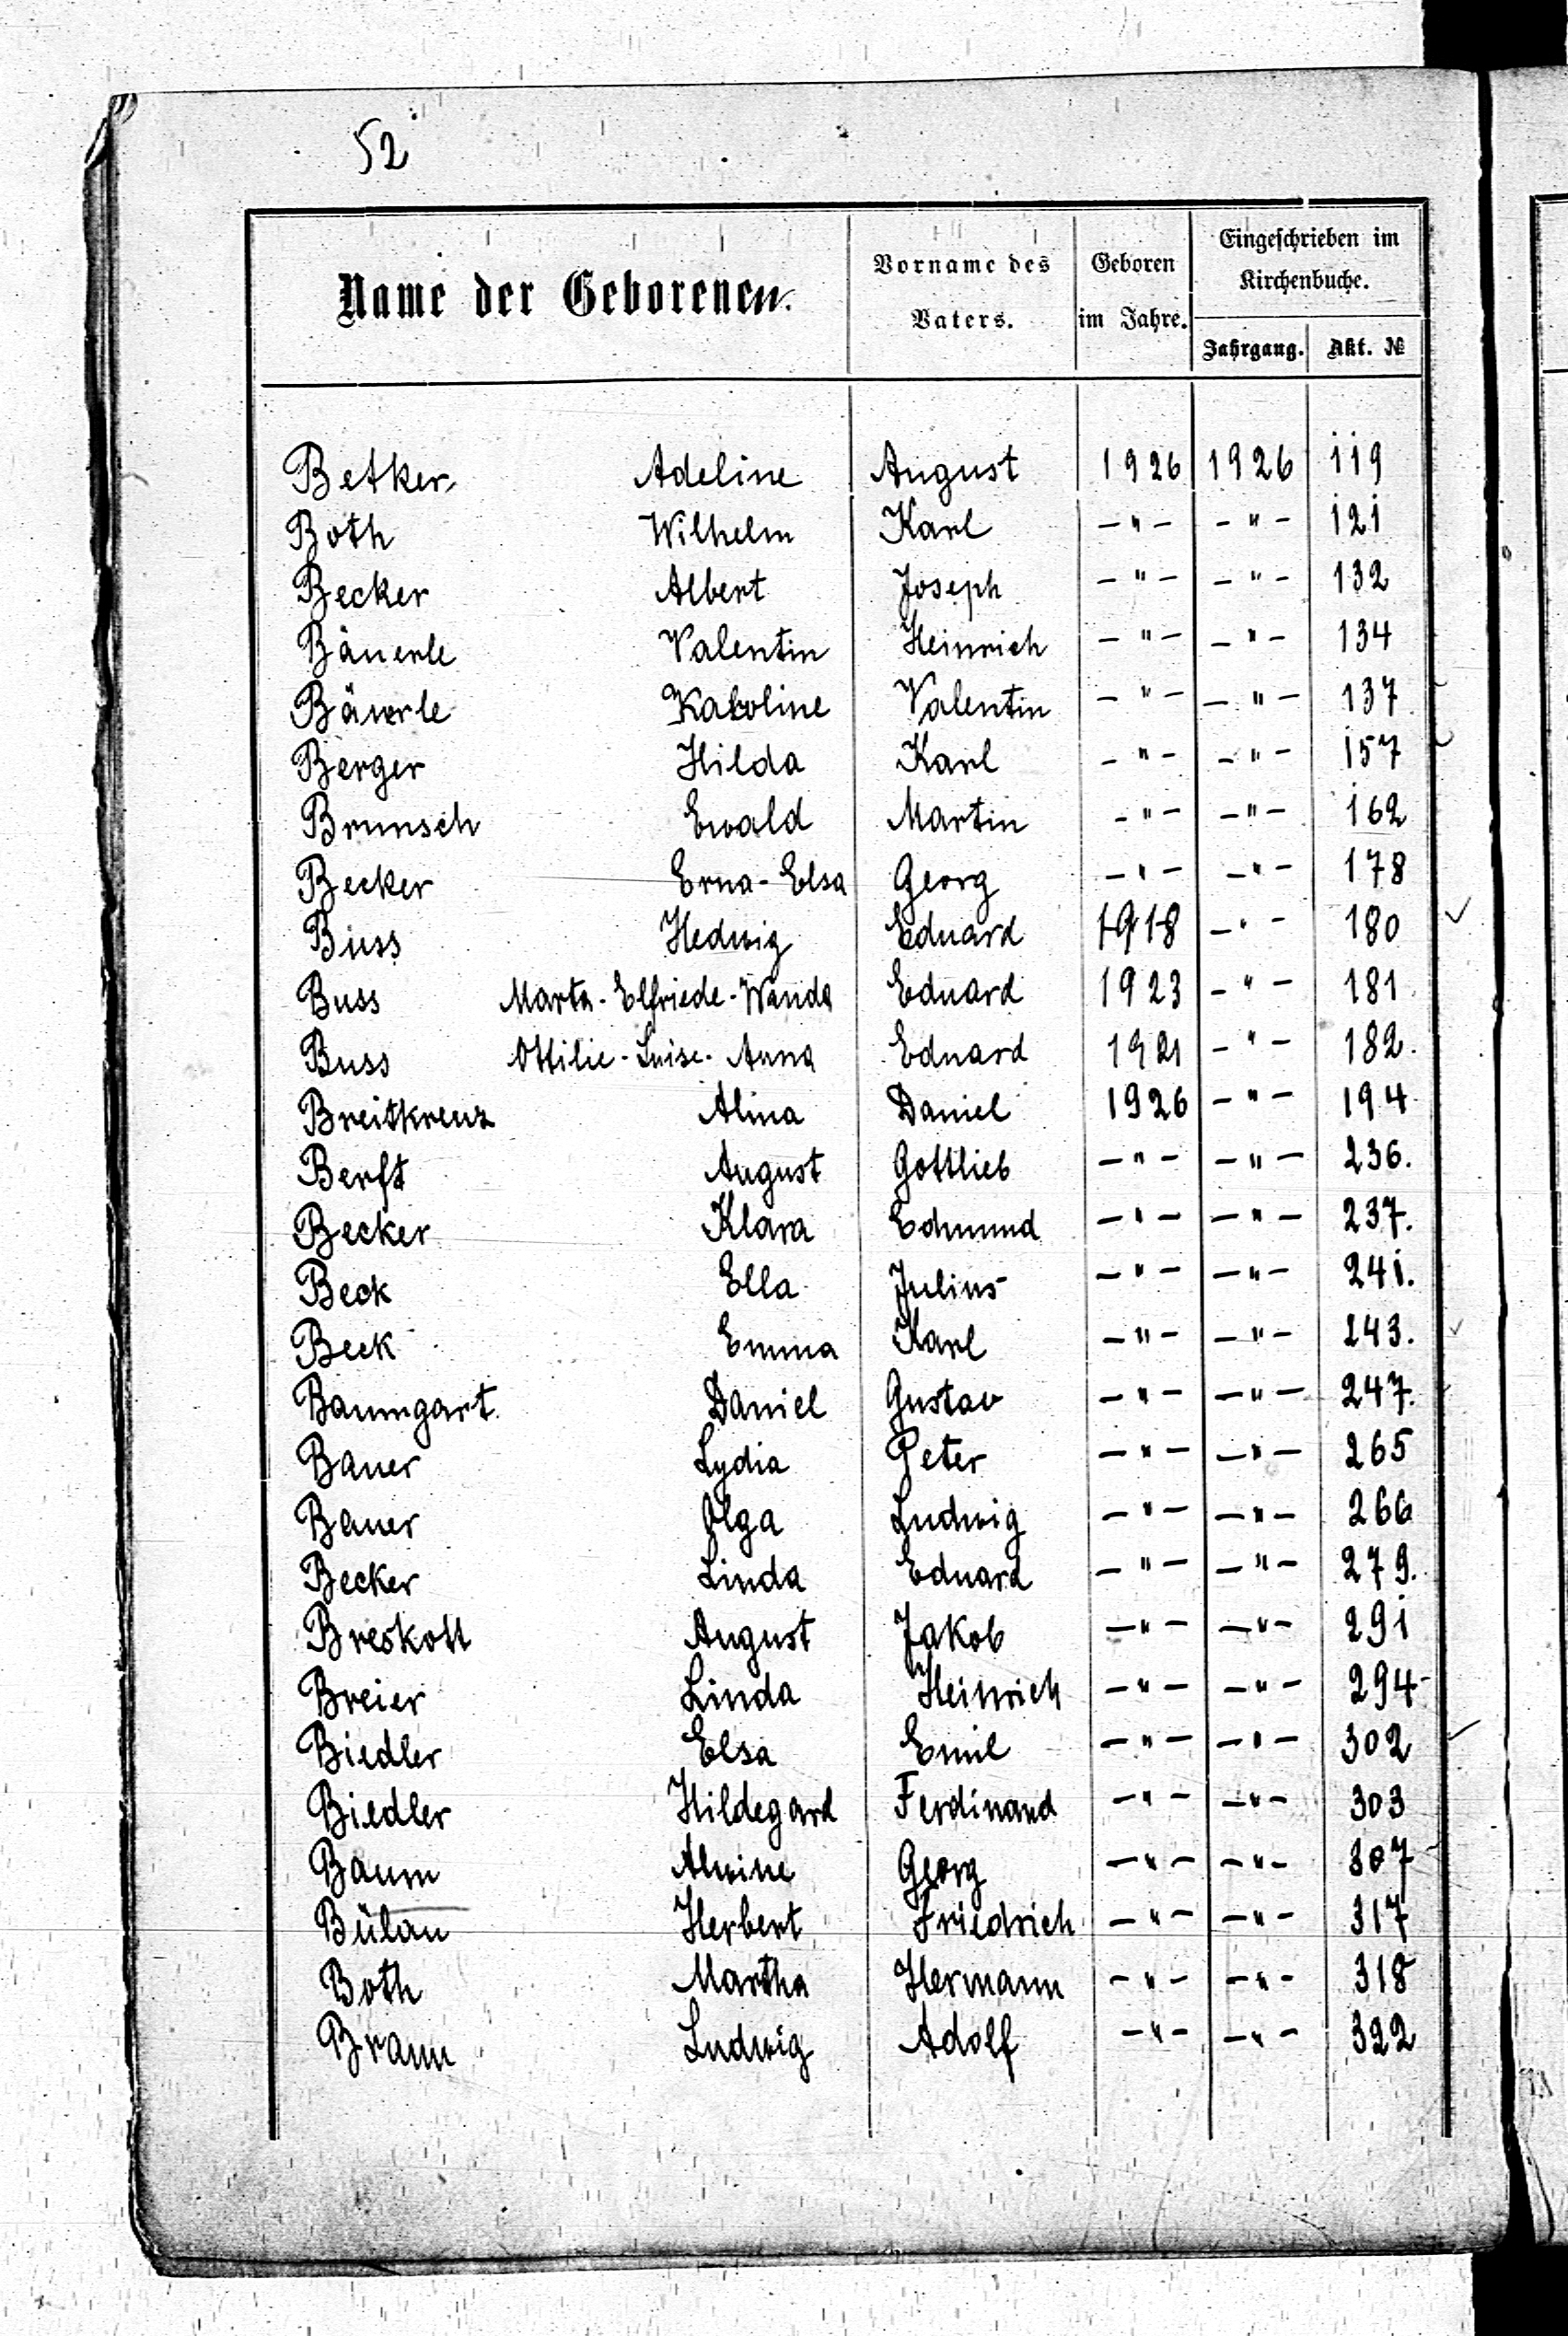 52
Name der Geborenen.
Vorname des Vaters.
Geboren im Jahre.
Eingeschrieben im Kirchenbuche.
Jahrgang. Akt. №
Betker Adeline August 1926 1926 119
Both Wilhelm Karl -"- -"- 121
Becker Albert Joseph -"- -"- 132
Bäuerle Valentin Heinrich -"- -"- 134
Bäuerle Karoline Valentin -"- -"- 137
Berger Hilda Karl -"- -"- 157
Brunsch Ewald Martin -"- -"- 162
Becker Erna-Elsa Georg -"- -"- 178
Buss Hedwig Eduard 1918 -"- 180
Buss Marta-Elfriede-Wanda Eduard 1923 -"- 181
Buss Ottilie-Luise-Anna Eduard 1921 -"- 182.
Breitkreuz Alina Daniel 1926 -"- 194
Berft August Gottlieb -"- -"- 236.
Becker Klara Edmund -"- -"- 237.
Beck Ella Julius -"- -"- 241.
Beck Emma Karl -"- -"- 243.
Baumgart Daniel Gustav -"- -"- 247.
Bauer Lydia Peter -"- -"- 265
Bauer Olga Ludwig -"- -"- 266
Becker Linda Eduard -"- -"- 279.
Breskott August Jakob -"- -"- 291
Breier Linda Heinrich -"- -"- 294
Biedler Elsa Emil -"- -"- 302
Biedler Hildegard Ferdinand -"- -"- 303
Baum Alwine Georg -"- -"- 307
Bülau Herbert Friedrich -"- -"- 317
Both Martha Hermann -"- -"- 318
Braun Ludwig Adolf -"- -"- 322